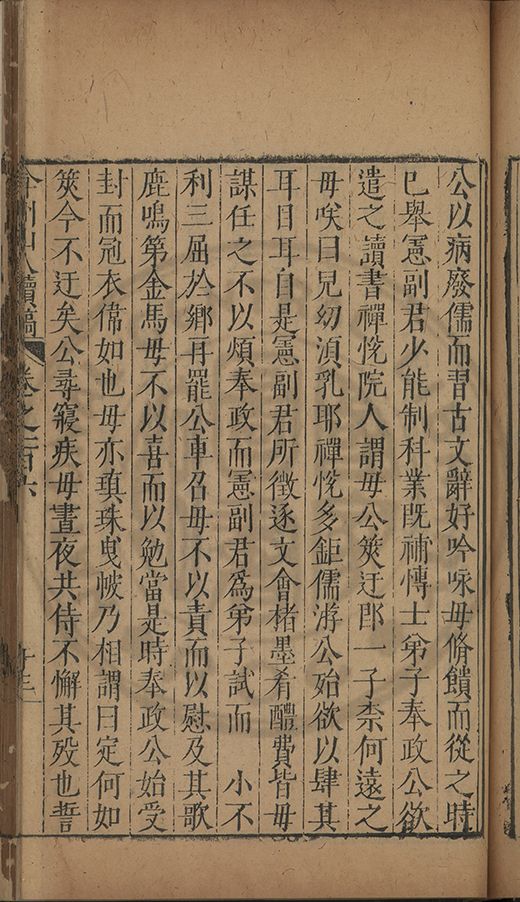 公以病廢儒而習古文辭好吟咏毋脩饋而從之時
已舉憲副君少能制科業既補博士弟子奉政公欲
遣之讀書禪悅院人謂毋公筴迂郎一子柰何遠之
毋咲曰兒幼湏乳耶禪悅多鉅儒游公始欲以肆其
耳目耳自是憲副君所徵逐文會楮墨肴醴費皆毋
謀任之不以煩奉政而憲副君為弟子試而 小不
利三屈於鄉再罷公車召毋不以責而以慰及其歌
鹿鳴第金馬毋不以喜而以勉當是時奉政公始受
封而冠衣偹如也毋亦瑱珠曳帔乃相謂曰定何如
筴今不迂矣公尋寢疾毋晝夜共侍不懈其歿也誓
弇州山人續稿 卷之一百六 十三